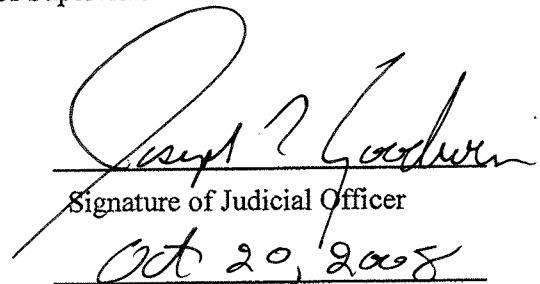 Joseph R Goodwin
Signature of Judicial Officer
Oct 20, 2008